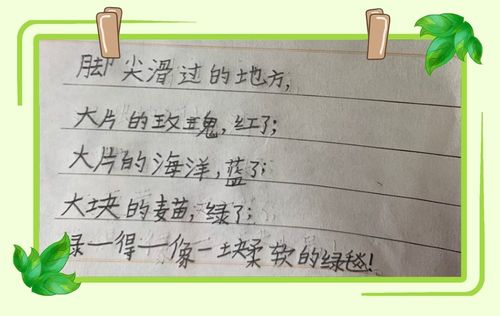 脚尖滑过的地方，
大片的玫瑰，红了；
大片的海洋，蓝了；
大块的麦苗，绿了；
绿一得一像一块柔软的绿毯！